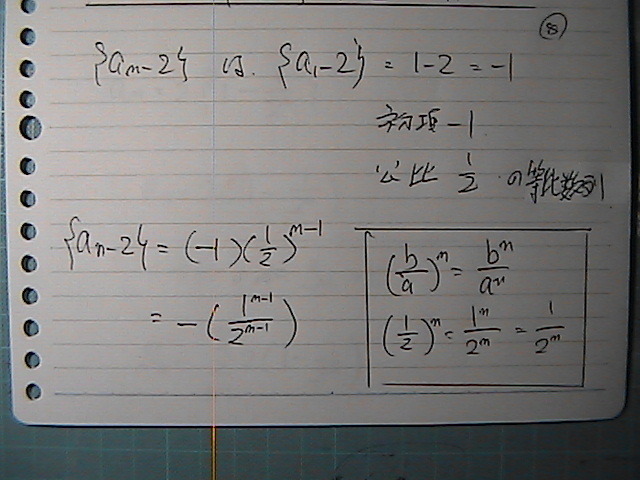 ⑧
{aₙ-2} は. {a₁-2} = 1-2 = -1
初項 -1
公比 1/2 の等比数列
{aₙ-2} = (-1)(1/2)^(n-1)
= -(1^(n-1)/2^(n-1))
(b/a)^n = b^n/a^n
(1/2)^n = 1^n/2^n = 1/2^n